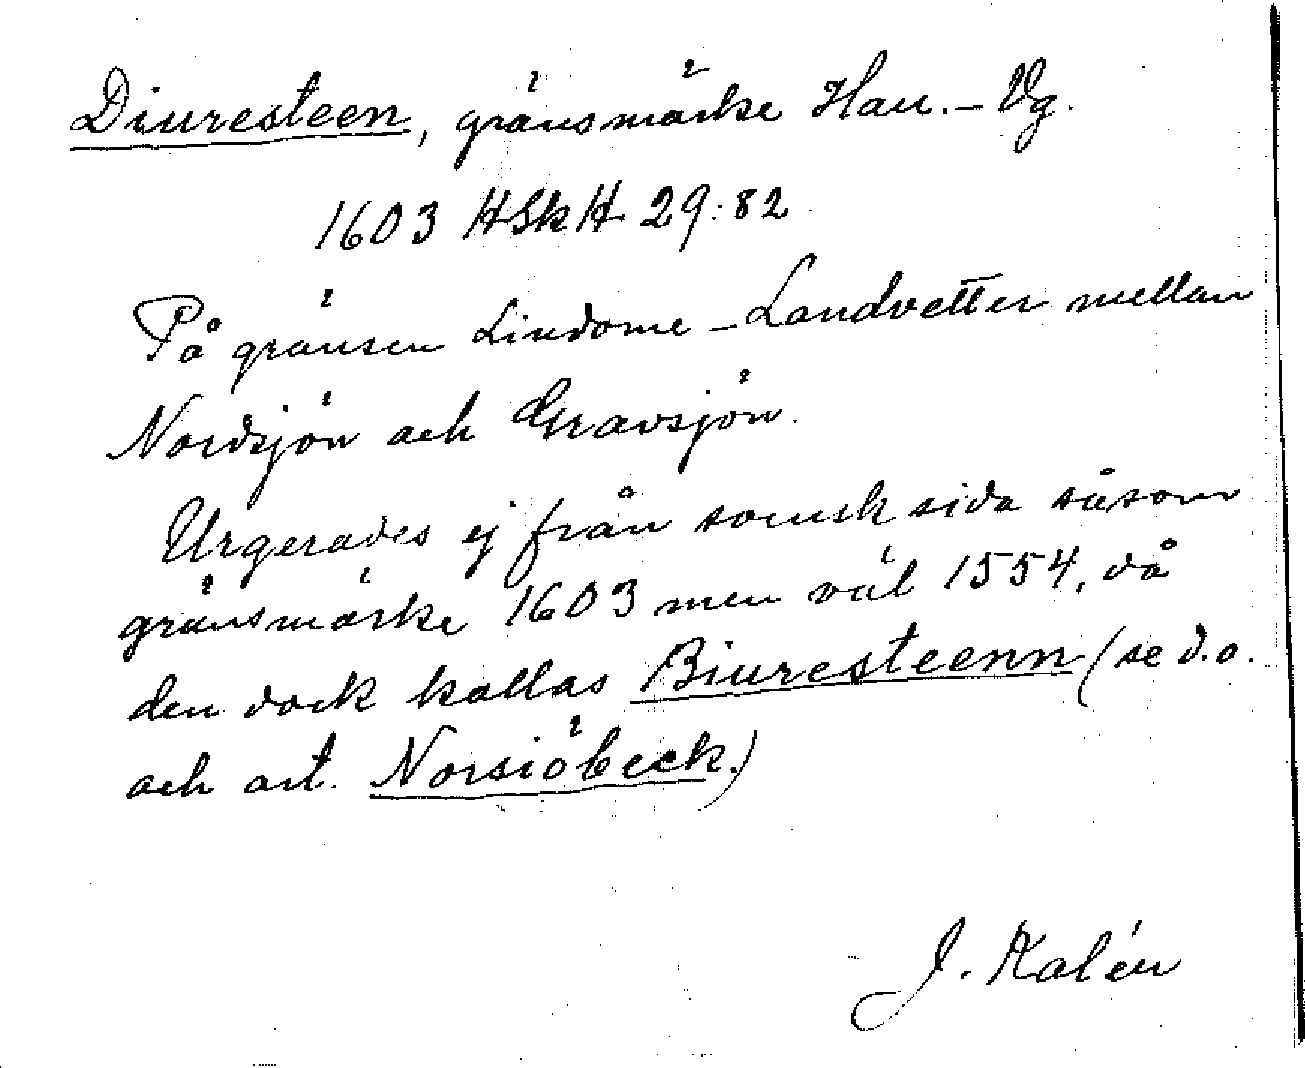 Diuresteen, gränsmärke Hall.–Vg.
1603 HSkH 29:82
På gränsen Lindome–Landvetter mellan
Nordsjön och Gravsjön.
Urgerades ej från svensk sida såsom
gränsmärke 1603 men väl 1554, då
den dock kallas Biuresteenn (se d.o.
och art. Norsiöbeck.)
J. Kalén